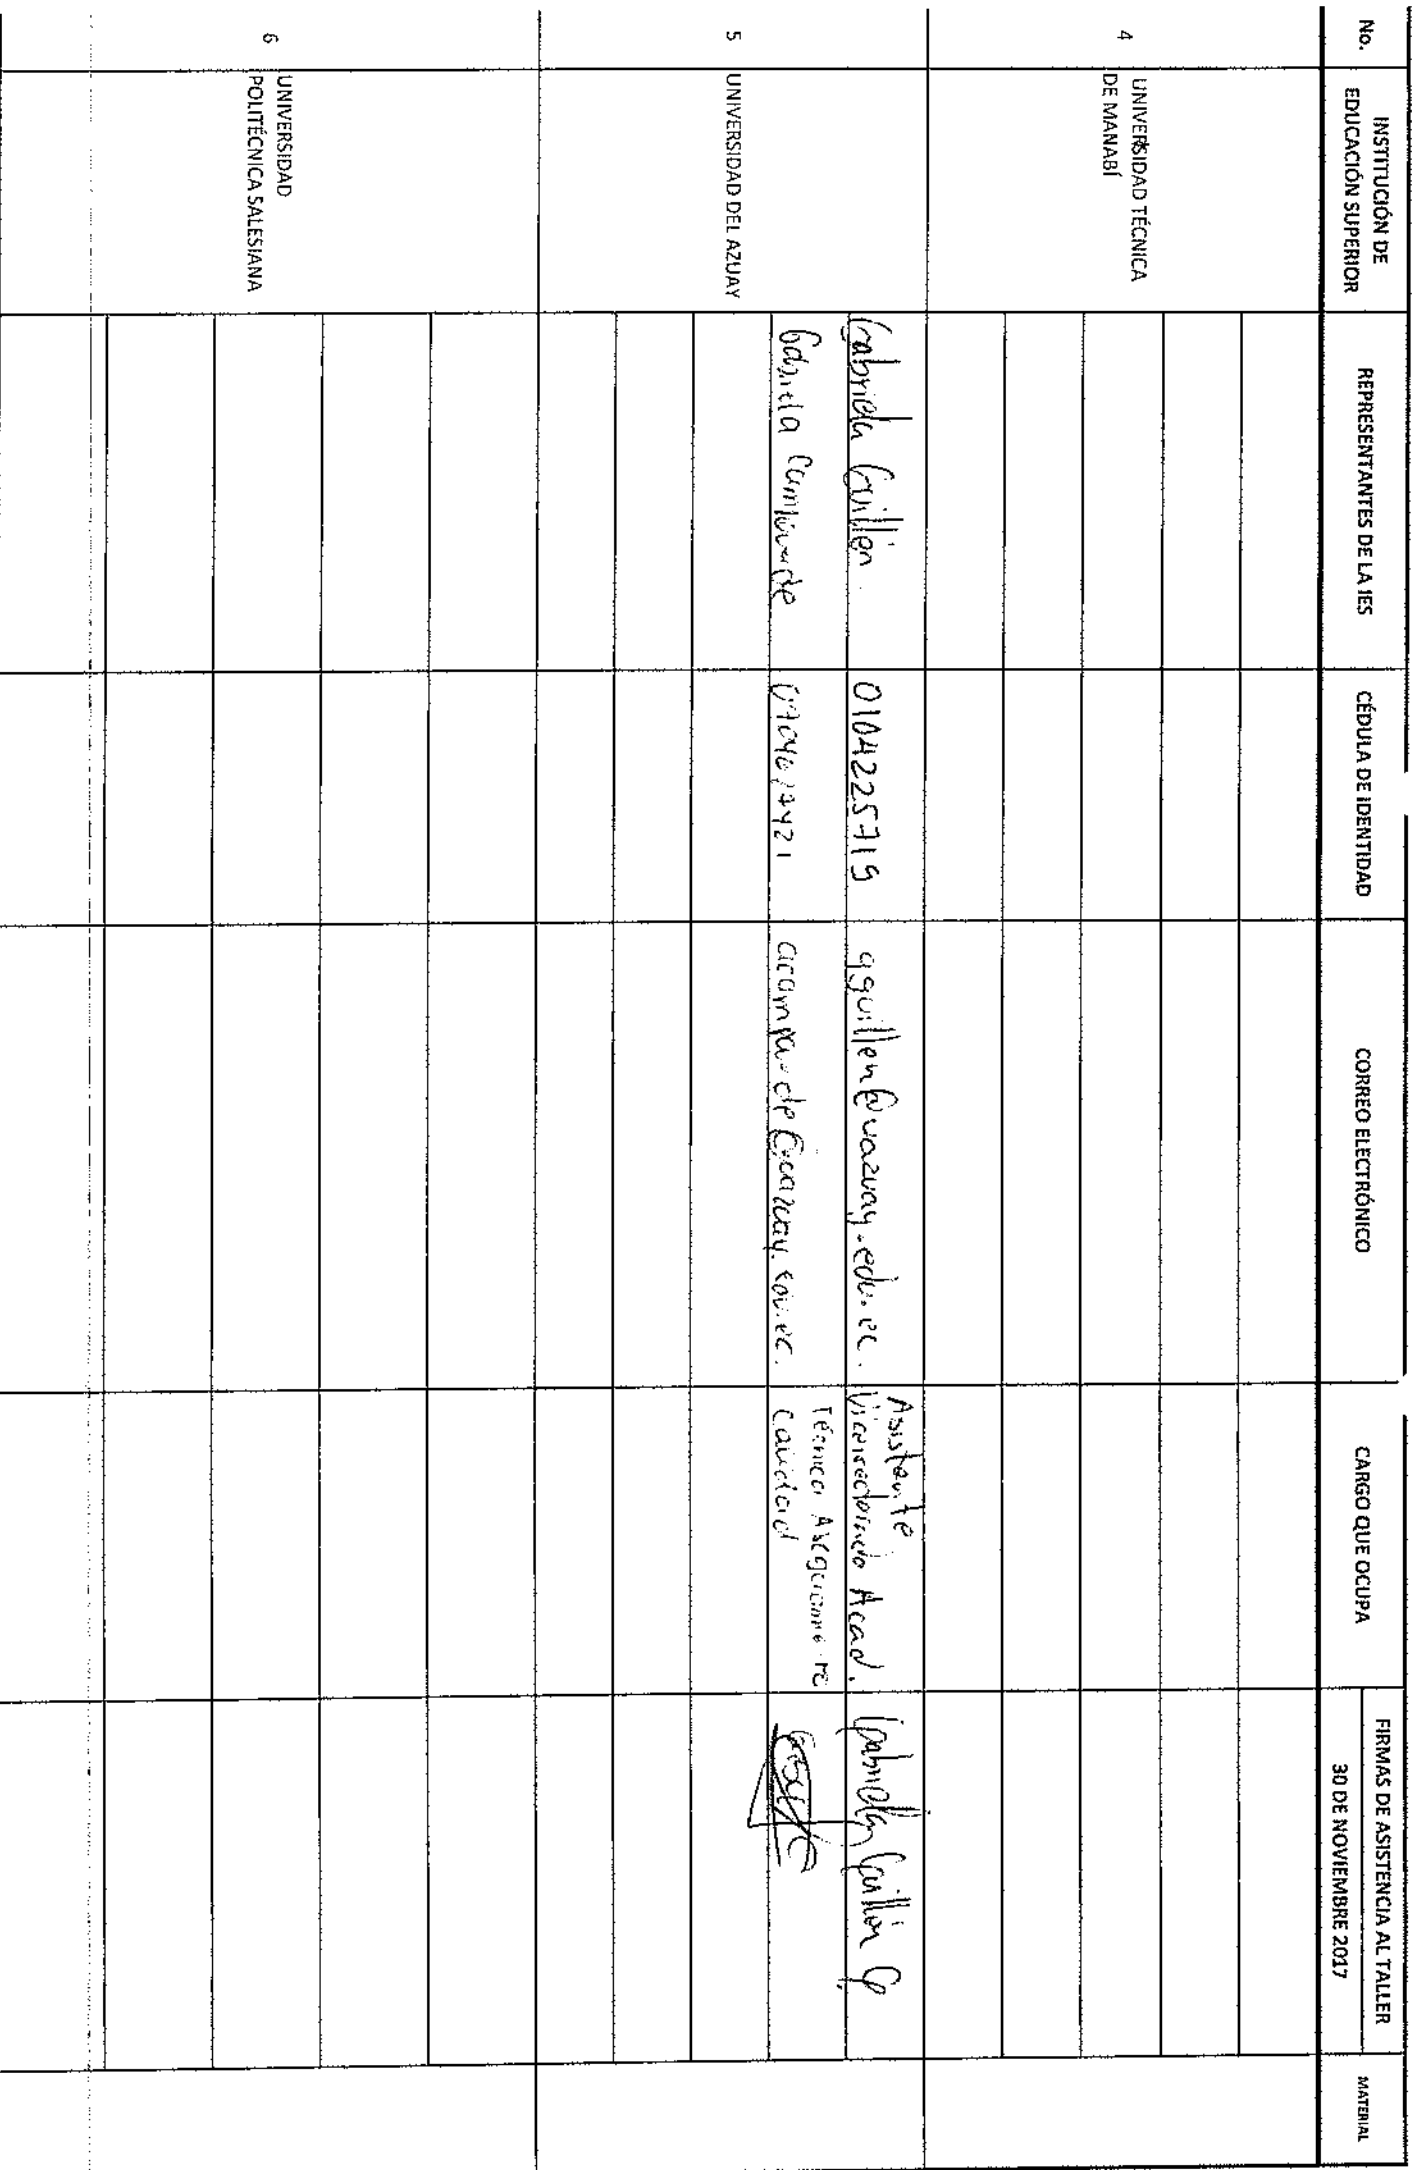 No.
INSTITUCIÓN DE
EDUCACIÓN SUPERIOR
REPRESENTANTES DE LA IES
CÉDULA DE IDENTIDAD
CORREO ELECTRÓNICO
CARGO QUE OCUPA
FIRMAS DE ASISTENCIA AL TALLER
30 DE NOVIEMBRE 2017
MATERIAL
4
UNIVERSIDAD TÉCNICA
DE MANABÍ
5
UNIVERSIDAD DEL AZUAY
Gabriela Guillén
0104225719
gguillen@uazuay.edu.ec.
Asistente
Vicerrectorado Acad.
Gabriela Guillén G
Gabriela
Técnica
Calidad
6
UNIVERSIDAD
POLITÉCNICA SALESIANA